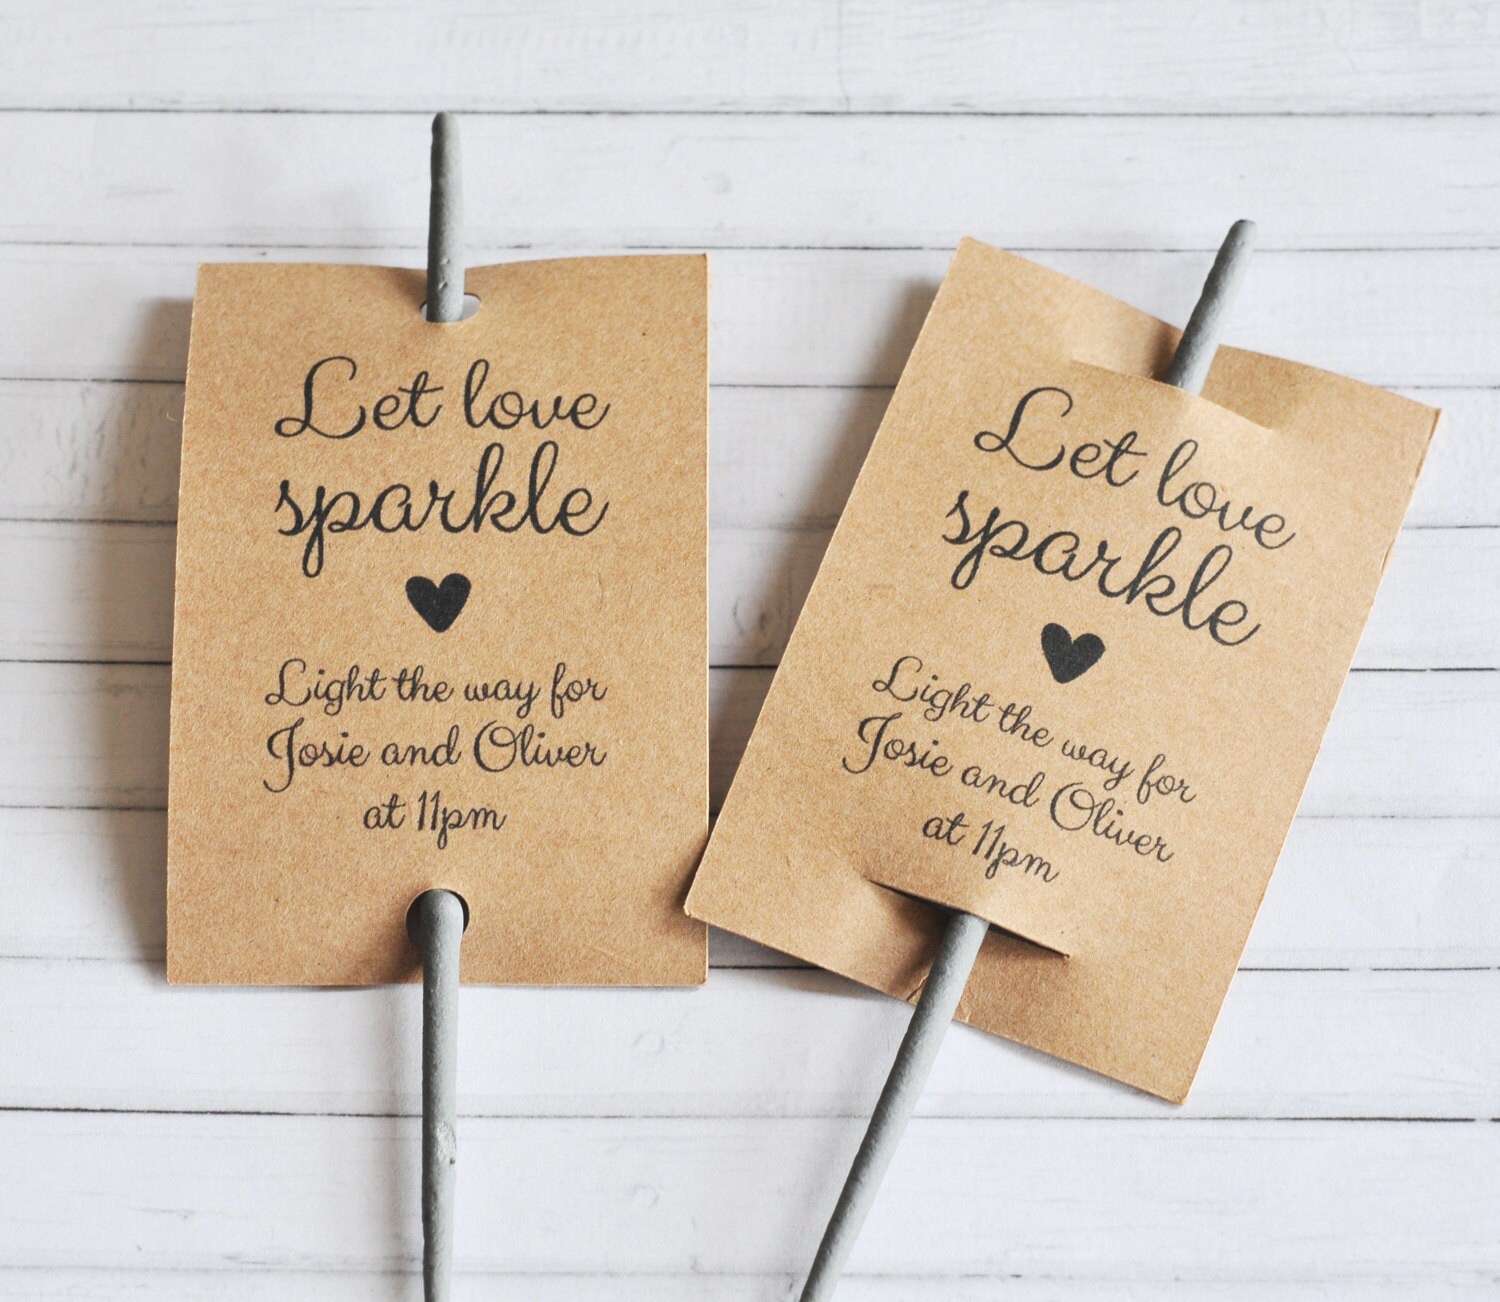 Let love
sparkle
Light the way for
Josie and Oliver
at 11pm
Let love
sparkle
Light the way for
Josie and Oliver
at 11pm